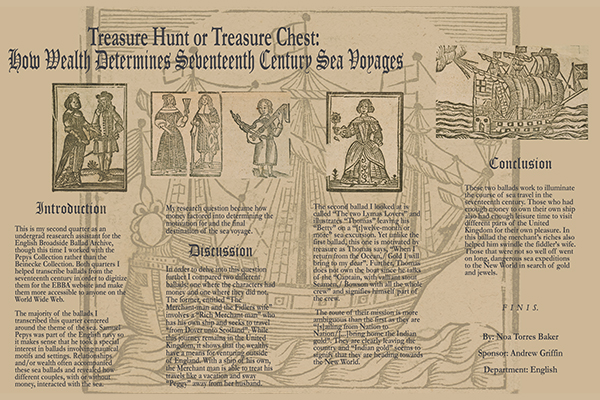 Treasure Hunt or Treasure Chest:
How Wealth Determines Seventeenth Century Sea Voyages
Introduction
This is my second quarter as an
undergrad reasearch assistant for the
English Broadside Ballad Archive,
though this time I worked with the
Pepys Collection rather than the
Beinecke Collection. Both quarters I
helped transcribe ballads from the
seventeenth century in order to digitize
them for the EBBA website and make
them more accessible to anyone on the
World Wide Web.
The majority of the ballads I
transcribed this quarter centered
around the theme of the sea. Samuel
Pepys was part of the English navy so
it makes sense that he took a special
interest in ballads involving nautical
motifs and settings. Relationships
and/or wealth often accompanied
these sea ballads and revealed how
different couples, with or without
money, interacted with the sea.
My research question became how
money factored into determining the
motivation for and the final
destination of the sea voyage.
Discussion
In order to delve into this question
further I compared two different
ballads: one where the characters had
money and one where they did not.
The former, entitled "The
Merchant-man and the Fidlers wife"
involves a "Rich Merchant man" who
has his own ship and seeks to travel
"from Dover unto Scotland". While
this journey remains in the United
Kingdom, it shows that the wealthy
have a means for venturing outside
of England. With a ship of his own,
the Merchant man is able to treat his
travels like a vacation and sway
"Peggy" away from her husband.
The second ballad I looked at is
called "The two Lymas Lovers" and
illustrates "Thomas" leaving his
"Betty" on a "[t]welve-month or
more" sea excursion. Yet unlike the
first ballad, this one is motivated by
treasure as Thomas says, "When I
return from the Ocean, / Gold I will
bring to my dear". Further, Thomas
does not own the boat since he talks
of the "Captain, with valiant stout
Seamen, / Bowson with all the whole
crew" and signifies himself part of
the crew.
The route of their mission is more
ambiguous than the first as they are
from Nation to
Nation[…]being home the Indian
gold". They are clearley leaving the
country and "Indian gold" seems to
signify that they are heading towards
the New World.
Conclusion
These two ballads work to illuminate
the course of sea travel in the
seventeenth century. Those who had
enough money to own their own ship
also had enough leisure time to visit
different parts of the United
Kingdom for their own pleasure. In
this ballad the merchant's riches also
helped him swindle the fiddler's wife.
Those that were not so well off went
on long, dangerous sea expeditions
to the New World in search of gold
and jewels.
FINIS.
By: Noa Torres Baker
Sponsor: Andrew Griffin
Department: English